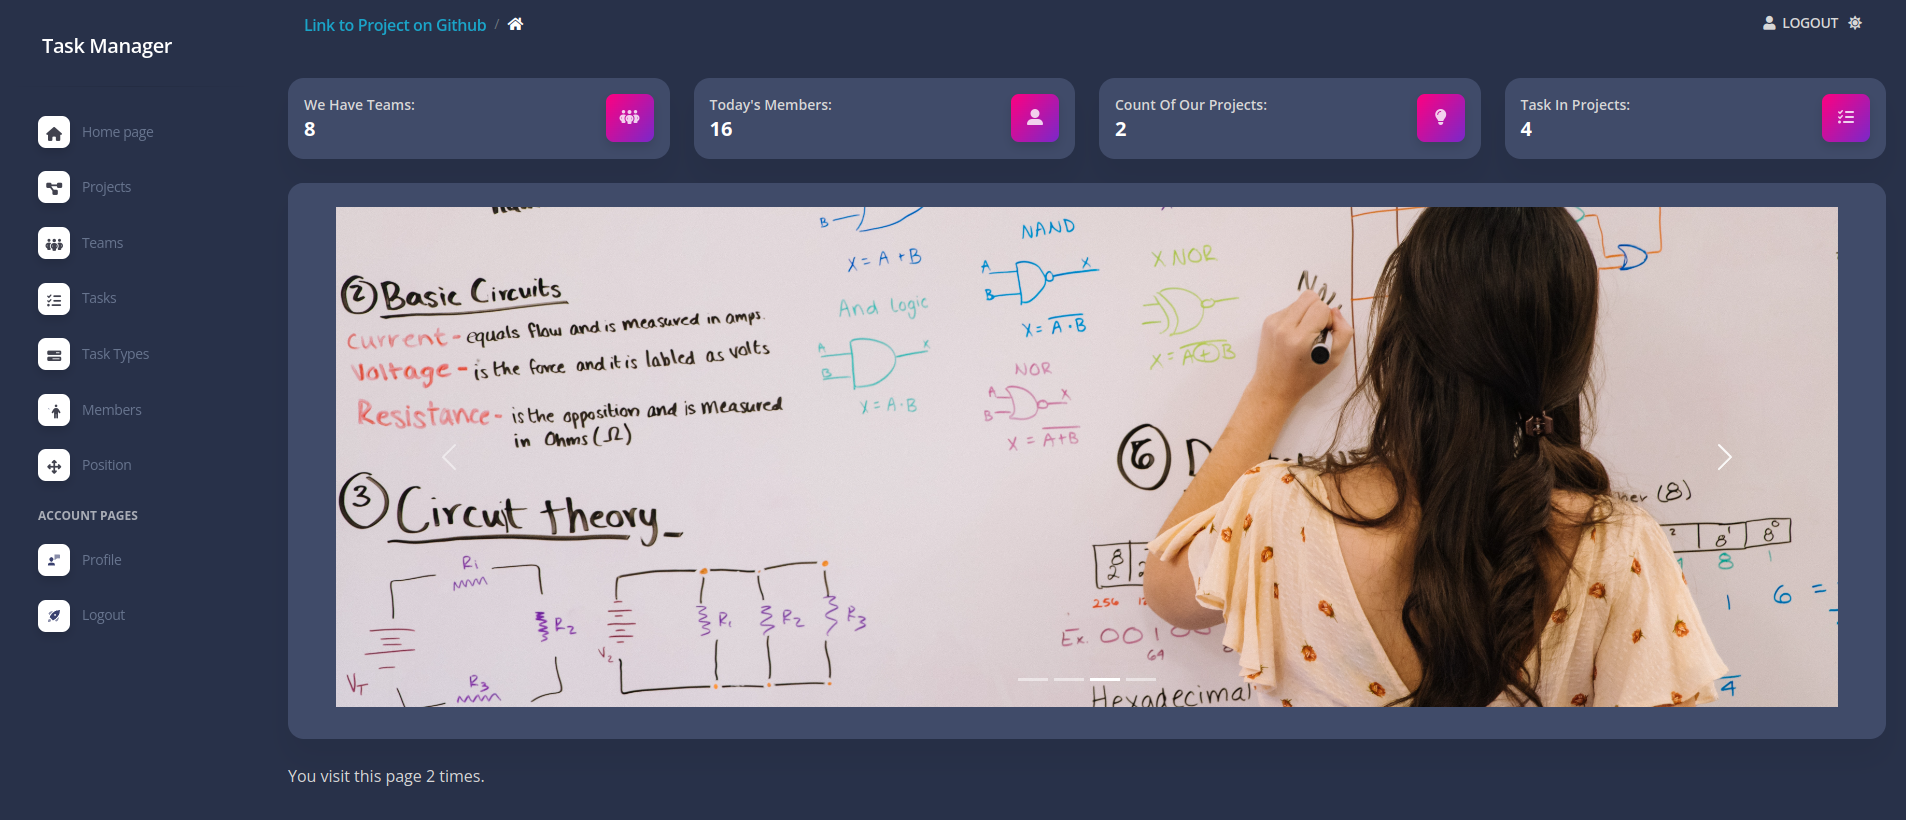 Task Manager
Home page
Projects
Teams
Tasks
Task Types
Members
Position
ACCOUNT PAGES
Profile
Logout
Link to Project on Github /
LOGOUT
We Have Teams:
8
Today's Members:
16
Count Of Our Projects:
2
Task In Projects:
4
② Basic Circuits
Current - equals flow and is measured in amps.
Voltage - is the force and it is labled as volts
Resistance - is the opposition and is measured
in Ohms (Ω)
③ Circuit theory_
R₁
R₂
R₃
V_T
V₂
R₁
R₂
R₃
B
X = A + B
And logic
A
B
X
X = A · B
NAND
A
B
X
X = \overline{A · B}
NOR
A
B
X
X = \overline{A+B}
X NOR
X = \overline{A⊕B}
⑥ D
(8)
8
2
8¹
8⁰
256
8
1
1
6 =
Ex. 00100
64
4
Hexadecimal
You visit this page 2 times.